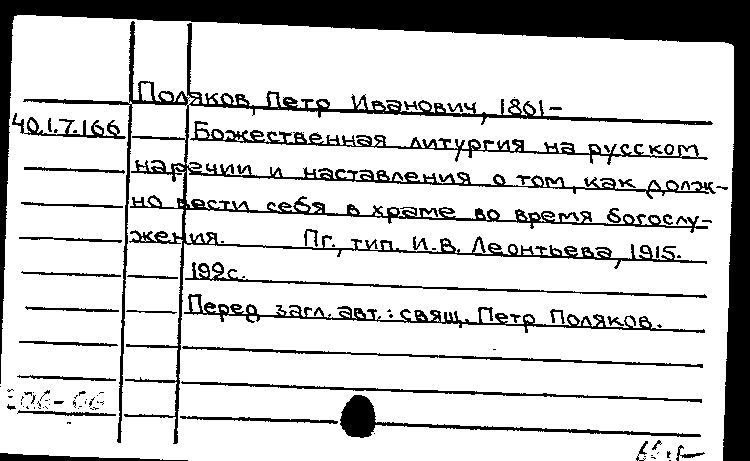 Поляков, Петр Иванович, 1861-
40.1.7.166
Божественная литургия на русском
наречии и наставления о том, как долж-
но вести себя в храме во время богослу-
жения. Пг., тип. И.В. Леонтьева, 1915.
199с.
Перед загл. авт.: свящ. Петр Поляков.